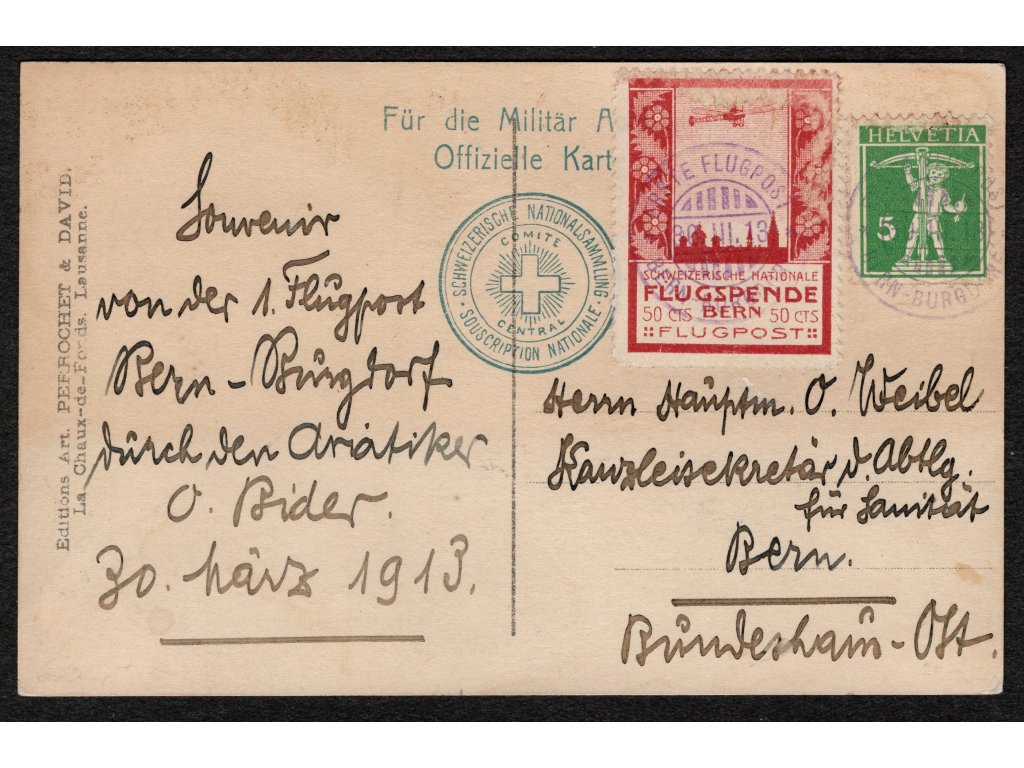 Editions Art. PERROCHET & DAVID.
La Chaux-de-Fonds. Lausanne.
Souvenir
von der 1. Flugpost
Bern - Burgdorf
durch den Aviatiker
O. Bider.
30. März 1913.
Für die Militär A
Offizielle Kart
SCHWEIZERISCHE NATIONALSAMMLUNG
COMITE
CENTRAL
SOUSCRIPTION NATIONALE
FLUGPOST
III. 13
SCHWEIZERISCHE NATIONALE
FLUGSPENDE
50 CTS BERN 50 CTS
FLUGPOST
HELVETIA
5
Herrn Hauptm. O. Weibel
Kanzleisekretär d. Abtlg.
für Sanität
Bern.
Bundeshaus-Ost.